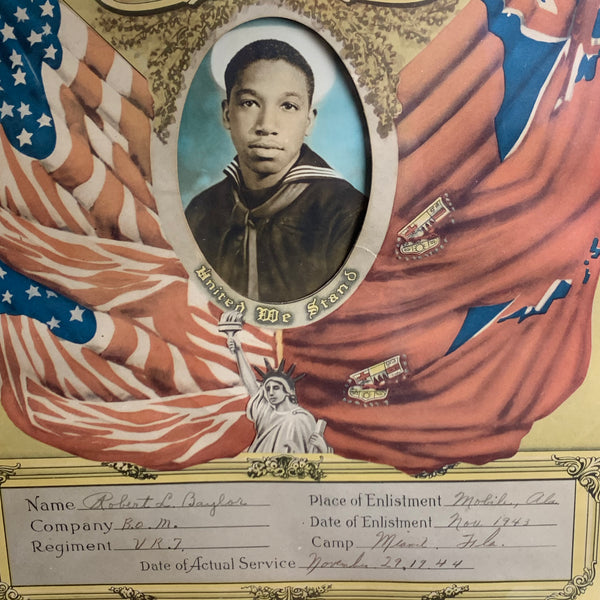 United We Stand
Name Robert L. Baylor
Company Bo. M.
Regiment V R. 7.
Place of Enlistment Mobile, Ala
Date of Enlistment Nov. 1943
Camp Miami Fla.
Date of Actual Service November 29, 1944